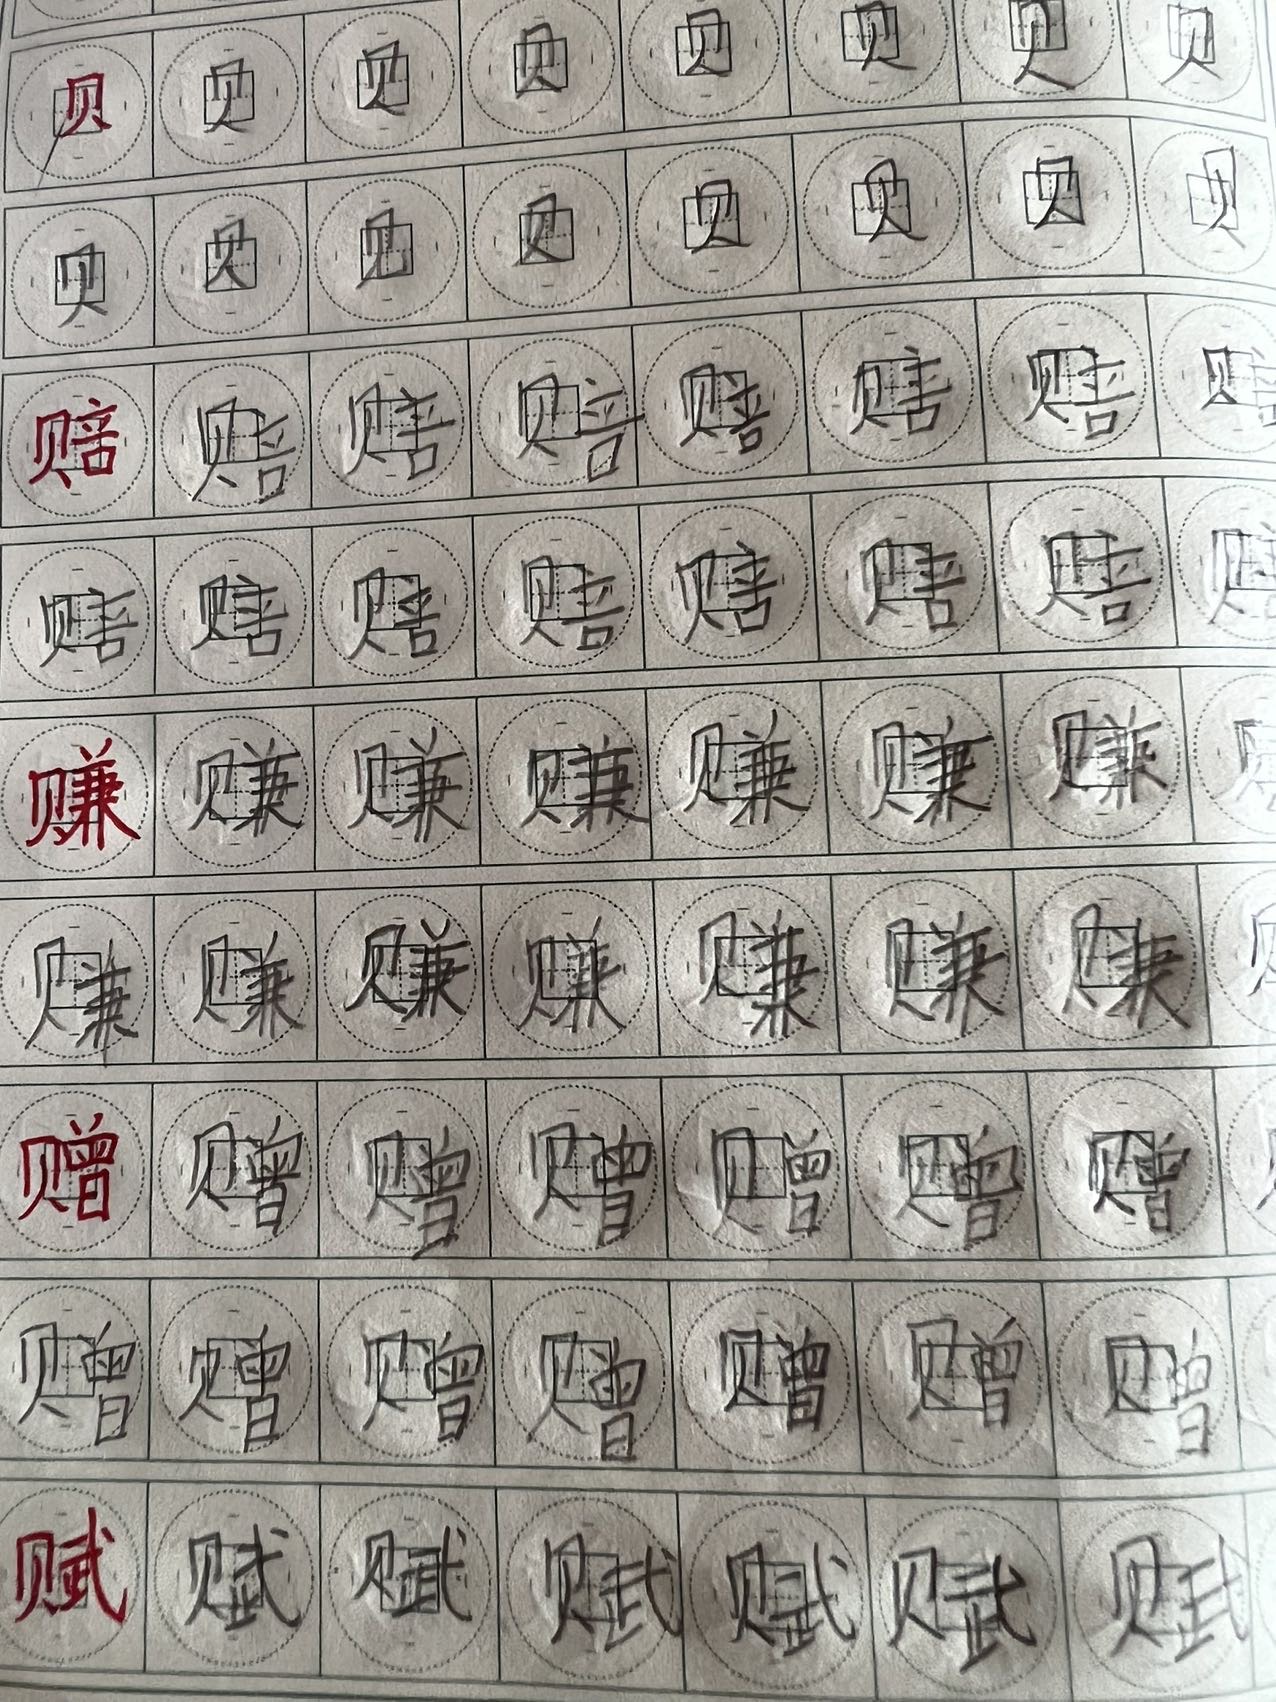 贝 贝 贝 贝 贝 贝 贝 贝
贝 贝 贝 贝 贝 贝 贝 贝
赔 赔 赔 赔 赔 赔 赔 赔
赔 赔 赔 赔 赔 赔 赔 赔
赚 赚 赚 赚 赚 赚 赚
赚 赚 赚 赚 赚 赚 赚
赠 赠 赠 赠 赠 赠 赠
赠 赠 赠 赠 赠 赠 赠
赋 赋 赋 赋 赋 赋 赋